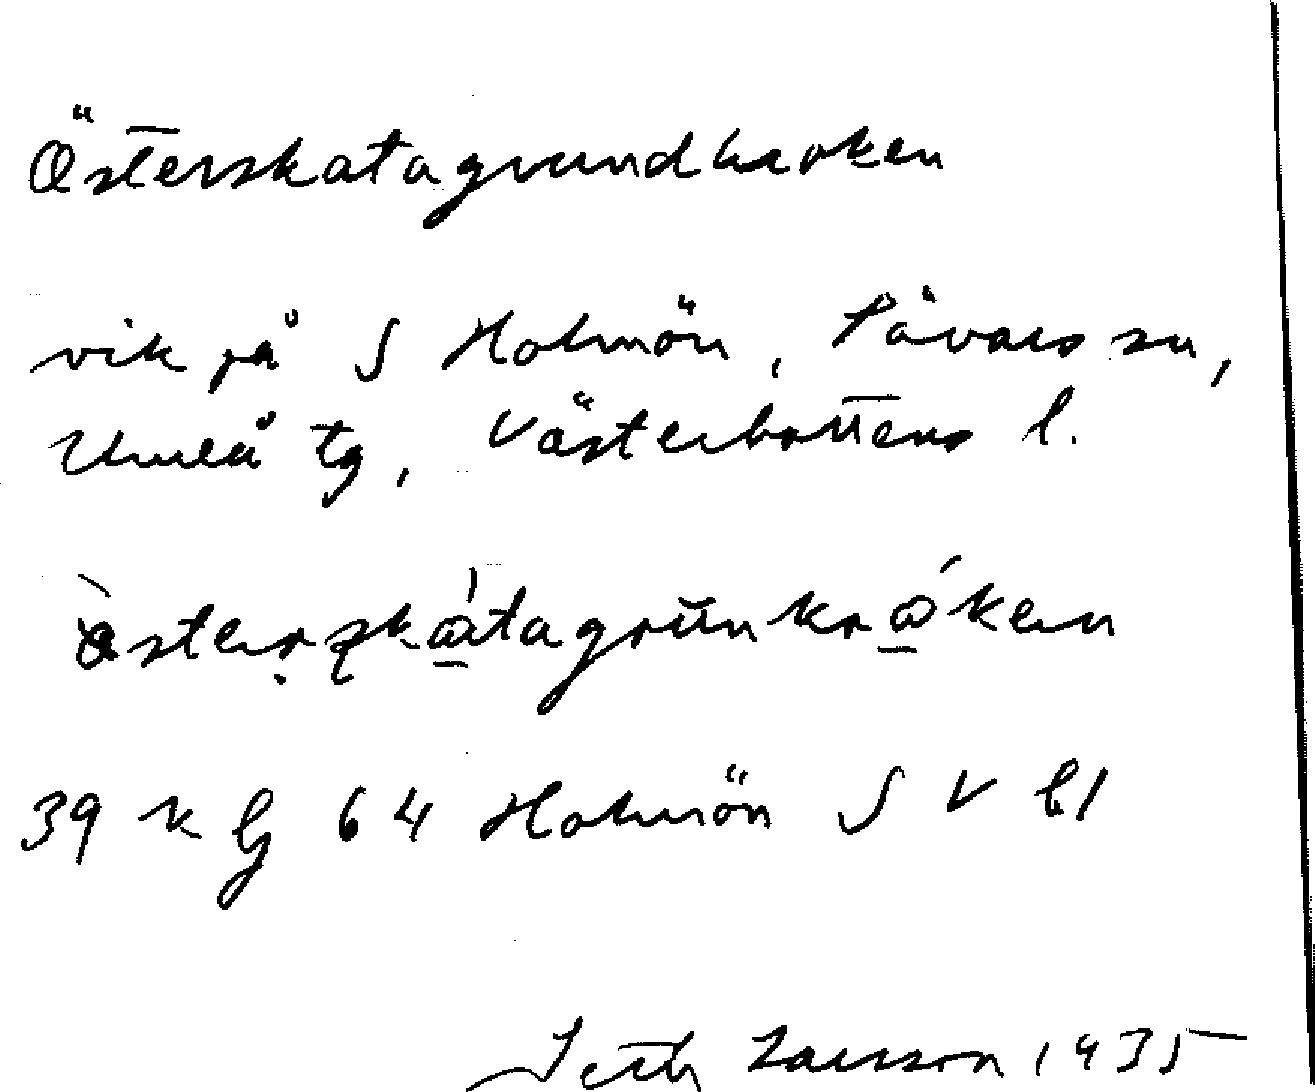 Österskatagrundkroken
vik på S Holmön, Sävars sn,
Umeå tg, Västerbottens l.
39 k lj 64 Holmön S V bl
Seth Larsson 1935